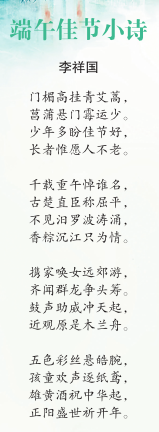 端午佳节小诗
李祥国
门楣高挂青艾蒿，
菖蒲悬门霉运少。
少年多盼佳节好，
长者惟愿人不老。
千载重午悼谁名，
古楚直臣称屈平，
不见汨罗波涛涌，
香粽沉江只为情。
携家唤女远郊游，
齐闻群龙争头筹。
鼓声助威冲天起，
近观原是木兰舟。
五色彩丝悬皓腕，
孩童欢声逐纸鸢，
雄黄酒祝中华起，
正阳盛世祈开年。